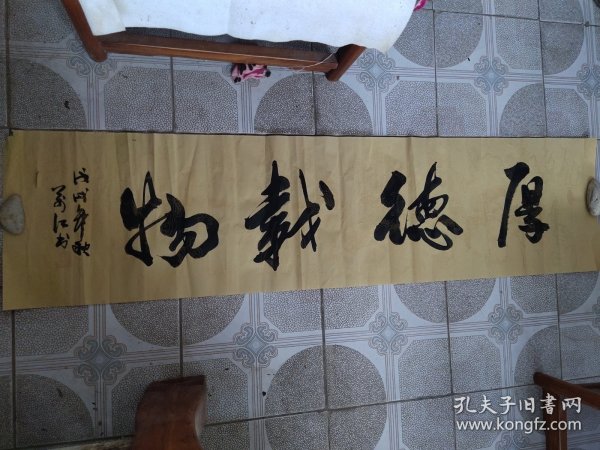 厚德载物
戊戌年秋
万江书
孔夫子旧书网
www.kongfz.com